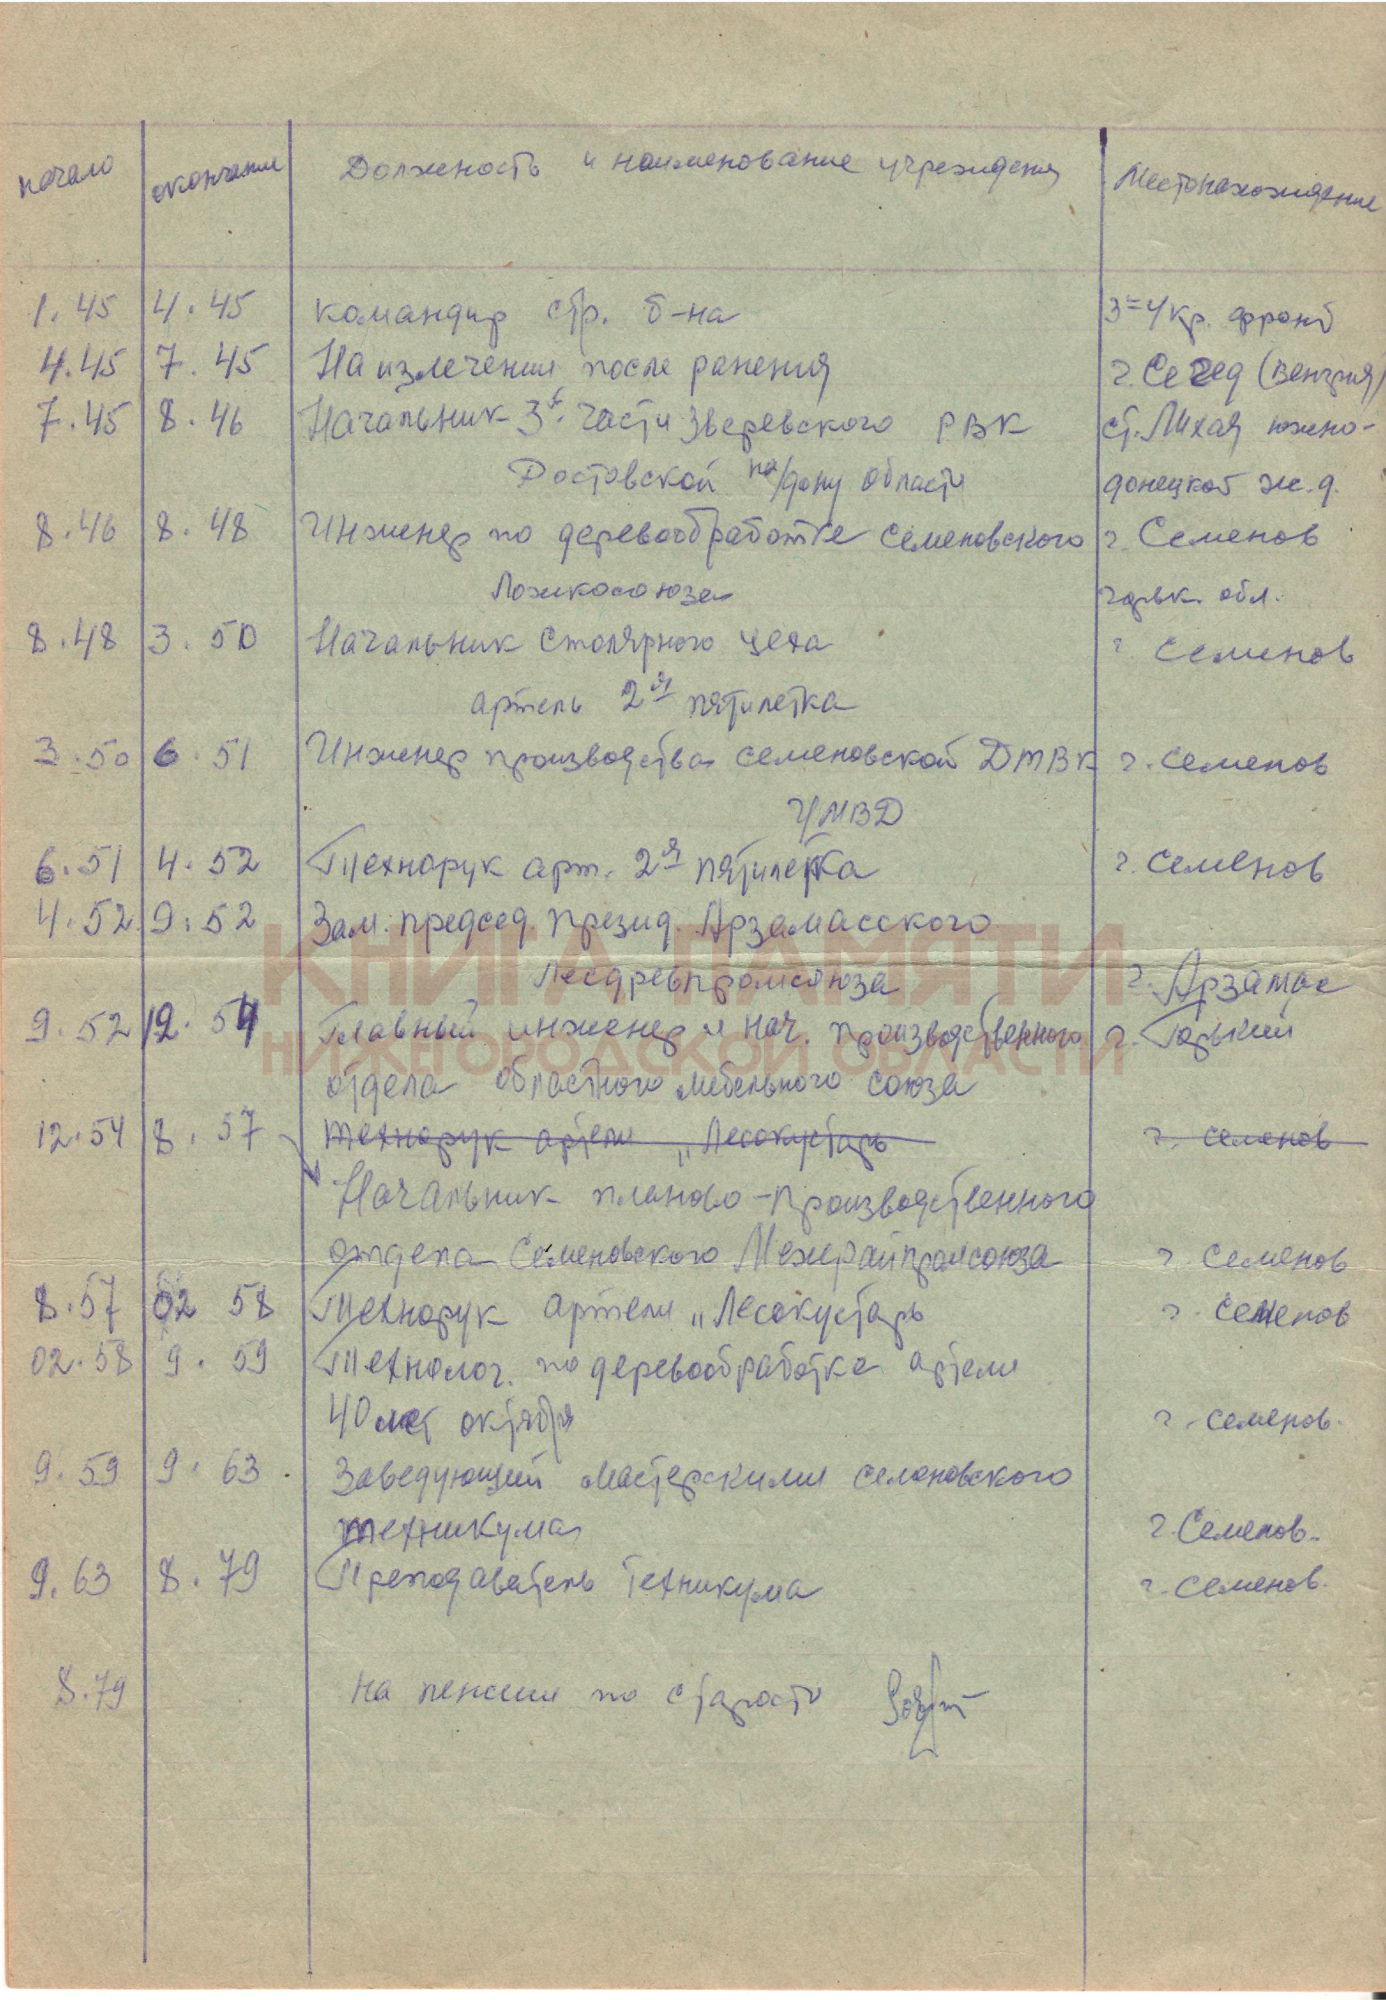 начало окончание Должность и наименование учреждения Местонахождение
1.45 4.45 командир стр. б-на 3= Укр. фронт
4.45 7.45 На излечении после ранения г. Сегед (Венгрия)
7.45 8.46 Начальник 3й части Зверевского РВК ст. Лихая южно-
Ростовской на/дону области донецкой ж.д.
8.46 8.48 Инженер по деревообработке Семеновского г. Семенов
Ложкосоюза горьк. обл.
8.48 3.50 Начальник столярного цеха г Семенов
артель 2я пятилетка
3.50 6.51 Инженер производства семеновской ДТВК г. Семенов
УМВД
6.51 4.52 Технорук арт. 2я пятилетка г. Семенов
4.52 9.52 Зам. председ. Презид. Арзамасского
Лесдревпромсоюза г. Арзамас
КНИГА ПАМЯТИ
9.52 12.54 Главный инженер и нач. производственного г. Горький
НИЖЕГОРОДСКОЙ ОБЛАСТИ
отдела областного мебельного союза
12.54 8.57 Технорук артели „Лесокустарь г. Семенов
Начальник планово-производственного
отдела Семеновского Межрайпромсоюза г Семенов
8.57 02 58 Технорук артели „Лесокустарь г. Семенов
02.58 9.59 Технолог. по деревообработке артели
40 лет октября г. Семенов.
9.59 9.63 Заведующий мастерскими семеновского
техникума г. Семенов.
9.63 8.79 Преподаватель Техникума г. Семенов.
8.79 на пенсии по старости